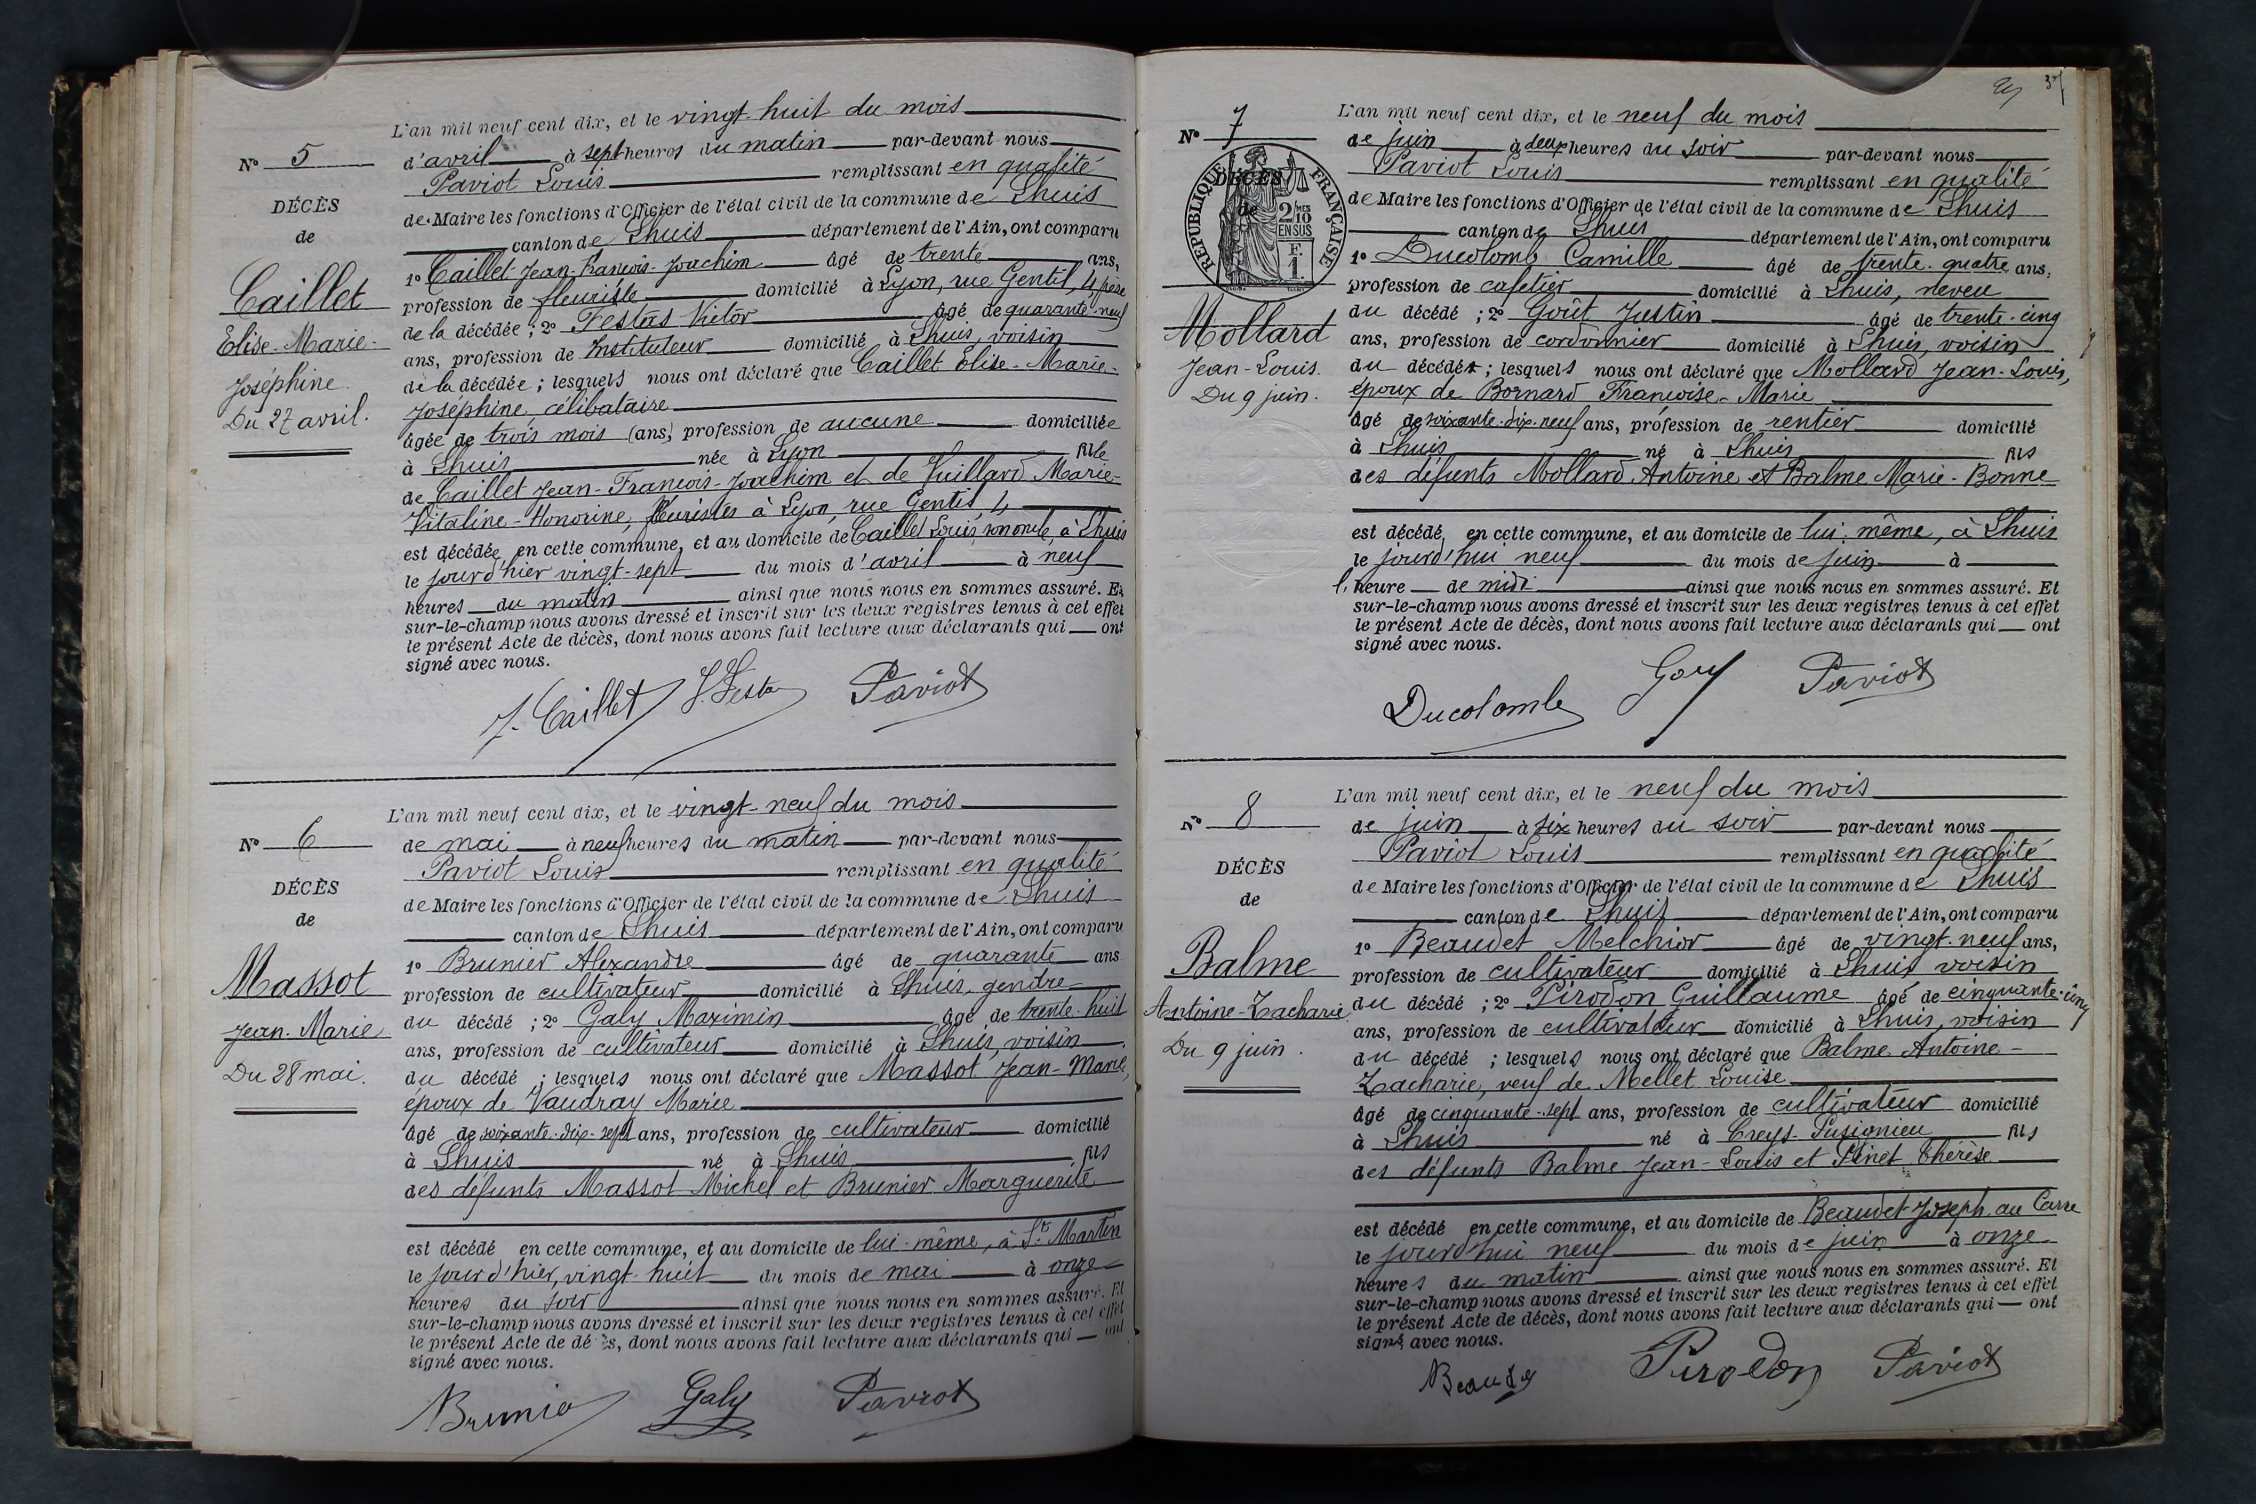 L'an mil neuf cent dix, et le vingt-huit du mois
N° 5
d'avril à sept heures du matin par-devant nous
Paviot Louis remplissant en qualité
DÉCÈS
de Maire les fonctions d'Officier de l'état civil de la commune de Lhuis
de
canton de Lhuis département de l'Ain, ont comparu
1° Caillet Jean-François-Joachim âgé de trente ans,
Caillet
profession de fleuriste domicilié à Lyon, rue Gentil, 4, père
de la décédée ; 2° Festas Victor âgé de quarante-neuf
Elise-Marie-
ans, profession de Instituteur domicilié à Lhuis, voisin
Joséphine.
de la décédée ; lesquels nous ont déclaré que Caillet Elise-Marie-
Du 27 avril.
Joséphine, célibataire
âgée de trois mois (ans) profession de aucune domiciliée
à Lhuis née à Lyon fille
de Caillet Jean-François-Joachim et de Juillard Marie-
Vitaline-Honorine, fleuristes à Lyon, rue Gentil, 4
est décédée en cette commune, et au domicile de Caillet Louis, son oncle, à Lhuis
le jour d'hier vingt-sept du mois d'avril à neuf
heures du matin ainsi que nous nous en sommes assuré. Et
sur-le-champ nous avons dressé et inscrit sur les deux registres tenus à cet effet
le présent Acte de décès, dont nous avons fait lecture aux déclarants qui ont
signé avec nous.
J. Caillet V. Festas Paviot
L'an mil neuf cent dix, et le vingt-neuf du mois
N° 6
de mai à neuf heures du matin par-devant nous
Paviot Louis remplissant en qualité
DÉCÈS
de Maire les fonctions d'Officier de l'état civil de la commune de Lhuis
de
canton de Lhuis département de l'Ain, ont comparu
1° Brunier Alexandre âgé de quarante ans
Massot
profession de cultivateur domicilié à Lhuis, gendre
Jean-Marie
du décédé ; 2° Galy Maximin âgé de trente-huit
ans, profession de cultivateur domicilié à Lhuis, voisin
Du 28 mai.
du décédé ; lesquels nous ont déclaré que Massot Jean-Marie,
époux de Vaudray Marie
âgé de soixante-dix-sept ans, profession de cultivateur domicilié
à Lhuis né à Lhuis fils
des défunts Massot Michel et Brunier Marguerite
est décédé en cette commune, et au domicile de lui-même, à St Martin
le jour d'hier, vingt-huit du mois de mai à onze
heures du soir ainsi que nous nous en sommes assuré. Et
sur-le-champ nous avons dressé et inscrit sur les deux registres tenus à cet effet
le présent Acte de décès, dont nous avons fait lecture aux déclarants qui ont
signé avec nous.
Brunier Galy Paviot
37
L'an mil neuf cent dix, et le neuf du mois
N° 7
de juin à deux heures du soir par-devant nous
Paviot Louis remplissant en qualité
RÉPUBLIQUE FRANÇAISE
DÉCÈS
de
2/10 MES EN SUS
F. 1.
de Maire les fonctions d'Officier de l'état civil de la commune de Lhuis
canton de Lhuis département de l'Ain, ont comparu
1° Ducolomb Camille âgé de trente-quatre ans,
profession de cafetier domicilié à Lhuis, neveu
Mollard
du décédé ; 2° Goût Justin âgé de trente-cinq
ans, profession de cordonnier domicilié à Lhuis, voisin
Jean-Louis.
du décédé ; lesquels nous ont déclaré que Mollard Jean-Louis,
Du 9 juin.
époux de Bornard Françoise-Marie
âgé de soixante-dix-neuf ans, profession de rentier domicilié
à Lhuis né à Lhuis fils
des défunts Mollard Antoine et Balme Marie-Bonne
est décédé en cette commune, et au domicile de lui-même, à Lhuis
le jourd'hui neuf du mois de juin à
l'heure de midi ainsi que nous nous en sommes assuré. Et
sur-le-champ nous avons dressé et inscrit sur les deux registres tenus à cet effet
le présent Acte de décès, dont nous avons fait lecture aux déclarants qui ont
signé avec nous.
Ducolomb Paviot
L'an mil neuf cent dix, et le neuf du mois
N° 8
de juin à six heures du soir par-devant nous
Paviot Louis remplissant en qualité
DÉCÈS
de Maire les fonctions d'Officier de l'état civil de la commune de Lhuis
de
canton de Lhuis département de l'Ain, ont comparu
1° Beaudet Melchior âgé de vingt-neuf ans,
Balme
profession de cultivateur domicilié à Lhuis voisin
Antoine-Zacharie
du décédé ; 2° Pirodon Guillaume âgé de cinquante-cinq
ans, profession de cultivateur domicilié à Lhuis, voisin
Du 9 juin.
du décédé ; lesquels nous ont déclaré que Balme Antoine-
Zacharie, veuf de Mellet Louise
âgé de cinquante-sept ans, profession de cultivateur domicilié
à Lhuis né à Creys-Pusignieu fils
des défunts Balme Jean-Louis et Pinet Thérèse
est décédé en cette commune, et au domicile de Beaudet Joseph, au Carre
le jourd'hui neuf du mois de juin à onze
heures du matin ainsi que nous nous en sommes assuré. Et
sur-le-champ nous avons dressé et inscrit sur les deux registres tenus à cet effet
le présent Acte de décès, dont nous avons fait lecture aux déclarants qui ont
signé avec nous.
Beaudet Pirodon Paviot